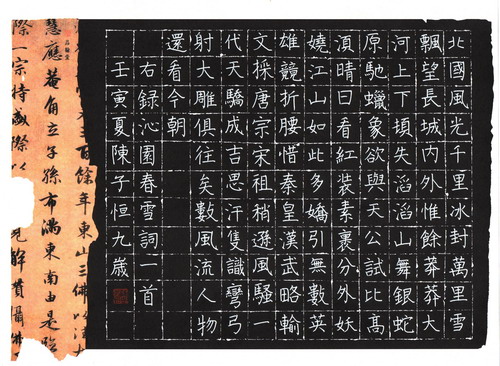 北國風光千里冰封萬里雪
飄望長城内外惟餘莽莽大
河上下頓失滔滔山舞銀蛇
原馳蠟象欲與天公試比高
須晴日看紅裝素裹分外妖
嬈江山如此多嬌引無數英
雄競折腰惜秦皇漢武略輸
文採唐宗宋祖稍遜風騷一
代天驕成吉思汗隻識彎弓
射大雕俱往矣數風流人物
還看今朝
右録沁園春雪詞一首
壬寅夏陳子恒九歲
百餘年東山三佛以
慧應菴角立子孫布滿東南由是臨
際一宗特盛際以見解貫攝